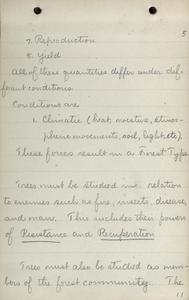 5
7. Reproduction
8. Yield
All of these quantities differ under dif-
ferent conditions.
Conditions are
1. Climatic (heat, moisture, atmos-
phere movements, soil, light, etc).
These forces result in a Forest Type
Trees must be studied in relation
to enemies such as fire, insects, disease,
and man. This includes their powers
of Resistance and Recuperation
Trees must also be studied as mem-
bers of the forest community. The